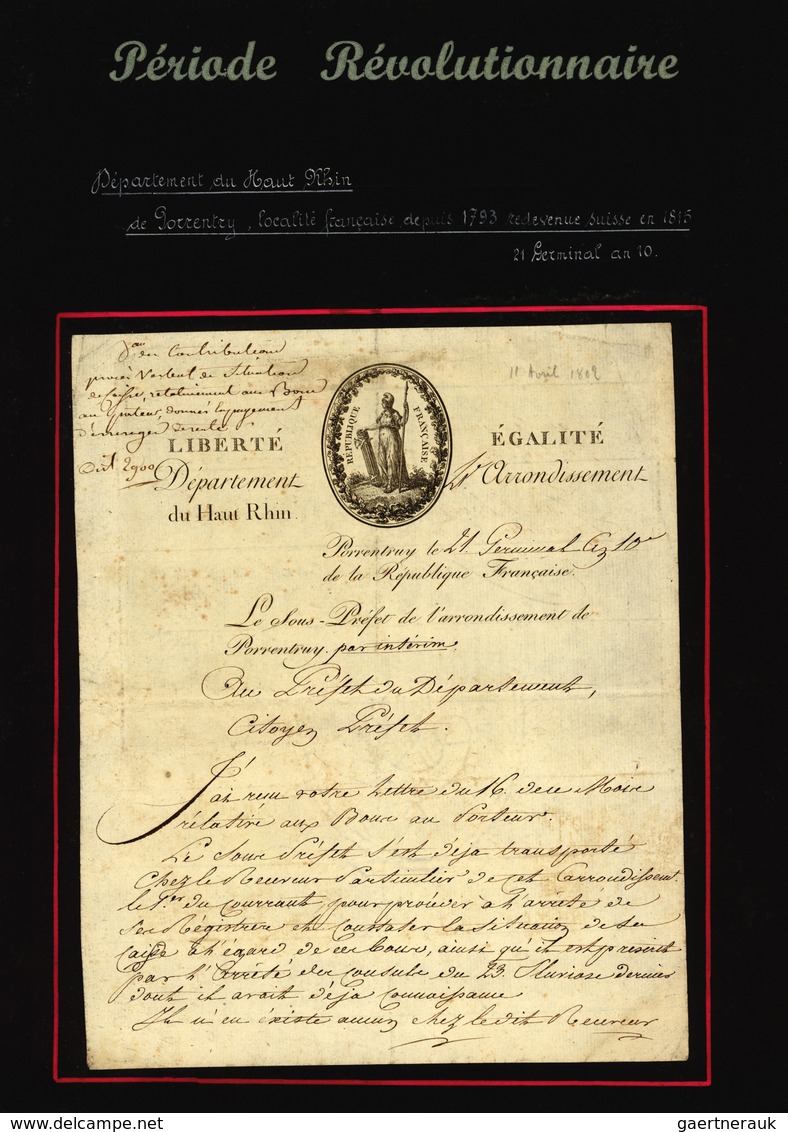 Période Révolutionnaire
Département du Haut Rhin
de Porrentry, localité française depuis 1793 redevenue suisse en 1815
21 Germinal an 10.
des Contributions
procès Verbal de Situation
de Caisse, relativement aux Bons
au Porteur, donnés en payement
11 Avril 1802
RÉPUBLIQUE FRANÇAISE
LIBERTÉ ÉGALITÉ
Département Arrondissement
du Haut Rhin.
Porrentruy le 21 Germinal 10e
de la République Française.
Le Sous-Préfet de l'arrondissement de
Porrentruy. par intérim.
Au Préfet du Département,
Citoyen Préfet.
J'ai reçu votre Lettre du 16. de ce Mois
rélative aux Bons au Porteur.
Le Sous Préfet s'est déja transporté
Chez le Receveur Particulier de cet Arrondissemt.
le 1er du Courrant, pour proceder à l'arrêté de
Ses Régistres et constater la Situation de Sa
caisse à l'égard de ces Bons, ainsi qu'il est prescrit
par l'Arrêté des Consuls du 23. Pluviose dernier
dont il avait déja connaissance
Il n'en existe aucun chez le dit Receveur
gaertnerauk